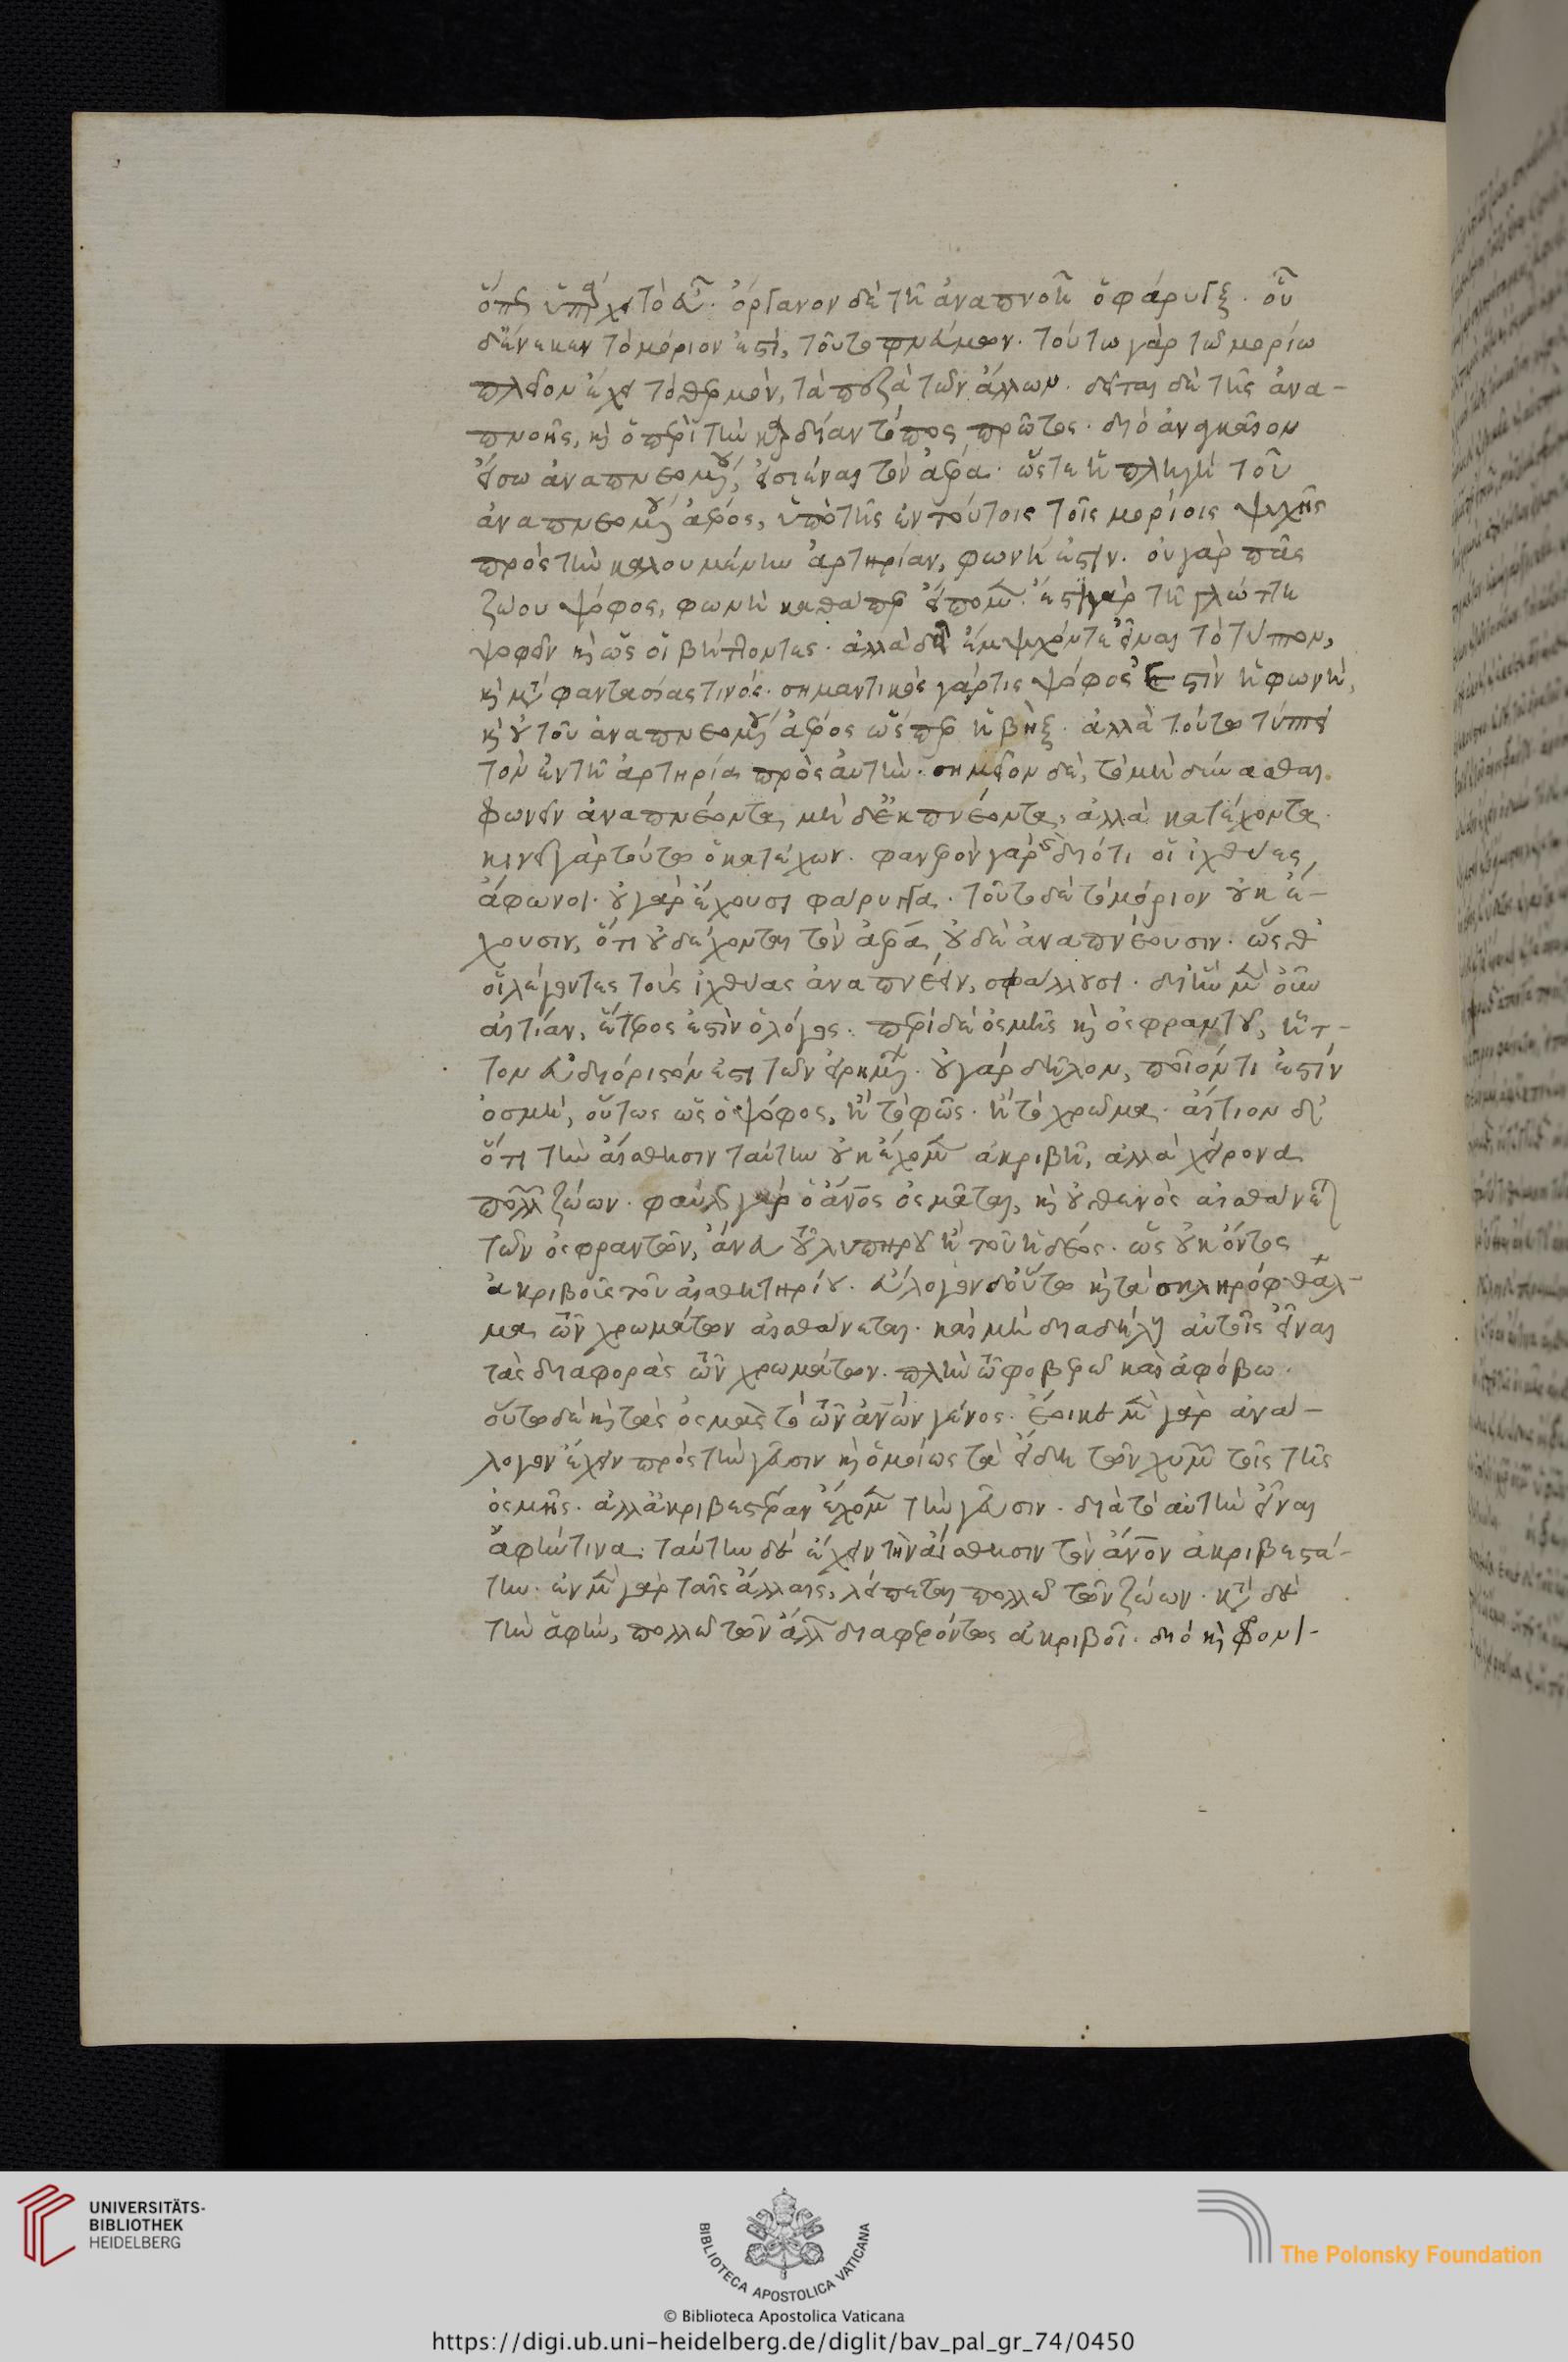 ὅπως ὑπάρχη τὸ εὖ. ὄργανον δὲ τῆ ἀναπνοῆ ὁ φάρυγξ. οὗ
δἕνεκεν τὸ μόριον ἐστὶ, τοῦτο πνεύμων. τούτω γὰρ τῶ μορίω
πλεῖον ἔχει τὸ θερμὸν, τὰ πεζὰ τῶν ἄλλων. δεῖται δὲ τῆς ἀνα-
πνοῆς, καὶ ὁ περὶ τὴν καρδίαν τόπος πρῶτος. διὸ ἀναγκαῖον
εἴσω ἀναπνεομένου, εἰσιέναι τὸν ἀέρα. ὥστε ἡ πληγὴ τοῦ
ἀναπνεομένου ἀέρος, ὑπὸ τῆς ἐν τούτοις τοῖς μορίοις ψυχῆς
πρὸς τὴν καλουμένην ἀρτηρίαν, φωνή ἐστιν. οὐ γὰρ πᾶς
ζώου ψόφος, φωνὴ καθάπερ εἴπομεν. ἔστι γὰρ τῆ γλώττη
ψοφεῖν καὶ ὡς οἱ βήττοντες. ἀλλὰ δεῖ ἔμψυχόν τε εἶναι τὸ τύπτον,
καὶ μετὰ φαντασίας τινός. σημαντικὸς γάρ τις ψόφος ἐστὶν ἡ φωνὴ,
καὶ οὐ τοῦ ἀναπνεομένου ἀέρος ὥσπερ ἡ βὴξ. ἀλλὰ τούτω τύπτει
τὸν ἐν τῆ ἀρτηρία πρὸς αὐτὴν. σημεῖον δὲ, τὸ μὴ δύνασθαι
φωνεῖν ἀναπνέοντα, μὴ δ' ἐκπνέοντα, ἀλλὰ κατέχοντα.
κινεῖ γὰρ τούτω ὁ κατέχων. φανερὸν γὰρ διότι οἱ ἰχθύες,
ἄφωνοι. οὐ γὰρ ἔχουσι φάρυγγα. τοῦτο δὲ τὸ μόριον οὐκ ἔ-
χουσιν, ὅτι οὐ δέχονται τὸν ἀέρα, οὐδὲ ἀναπνέουσιν. ὥσθ'
οἱ λέγοντες τοὺς ἰχθύας ἀναπνέειν, σφάλλουσι. δι' ἣν μὲν οὖν
αἰτίαν, ἕτερος ἐστὶν ὁ λόγος. περὶ δὲ ὀσμῆς καὶ ὀσφραντοῦ, ἧτ-
τον εὐδιόριστόν ἐστι τῶν εἰρημένων. οὐ γὰρ δῆλον, ποῖόν τι ἐστὶν
ὀσμὴ, οὕτως ὡς ὁ ψόφος, ἢ τὸ φῶς. ἢ τὸ χρῶμα. αἴτιον δ'
ὅτι τὴν αἴσθησιν ταύτην οὐκ ἔχομεν ἀκριβῆ, ἀλλὰ χείρονα
πολλῶν ζώων. φαύλως γὰρ ὁ ἄνος ὀσμᾶται, καὶ οὐθενὸς αἰσθάνεται
τῶν ὀσφραντῶν, ἄνευ τοῦ λυπηροῦ ἢ τοῦ ἡδέος. ὡς οὐκ ὄντος
ἀκριβοῦς τοῦ αἰσθητηρίου. εὔλογον δ' οὕτω καὶ τὰ σκληρόφθαλ-
μα τῶν χρωμάτων αἰσθάνεται. καὶ μὴ διαδήλους αὐτοῖς εἶναι
τὰς διαφορὰς τῶν χρωμάτων. πλὴν τῶ φοβερῶ καὶ ἀφόβω.
οὕτω δὲ καὶ τὰς ὀσμὰς τὸ τῶν ἀνῶν γένος. ἔοικε μὲν γὰρ ἀνά-
λογον ἔχειν πρὸς τὴν γεῦσιν καὶ ὁμοίως τὰ εἴδη τῶν χυμῶν τοῖς τῆς
ὀσμῆς. ἀλλ' ἀκριβεστέραν ἔχομεν τὴν γεῦσιν. διὰ τὸ αὐτὴν εἶναι
ἁφήν τινα. ταύτην δὲ ἔχειν τὴν αἴσθησιν τὸν ἄνον ἀκριβεστά-
την. ἐν μὲν γὰρ ταῖς ἄλλαις, λείπεται πολλῶ τῶν ζώων. κατὰ δὲ
τὴν ἁφήν, πολλῶ τῶν ἄλλων διαφερόντως ἀκριβοῖ. διὸ καὶ φρονι-
UNIVERSITÄTS-
BIBLIOTHEK
HEIDELBERG
BIBLIOTECA APOSTOLICA VATICANA
The Polonsky Foundation
© Biblioteca Apostolica Vaticana
https://digi.ub.uni-heidelberg.de/diglit/bav_pal_gr_74/0450